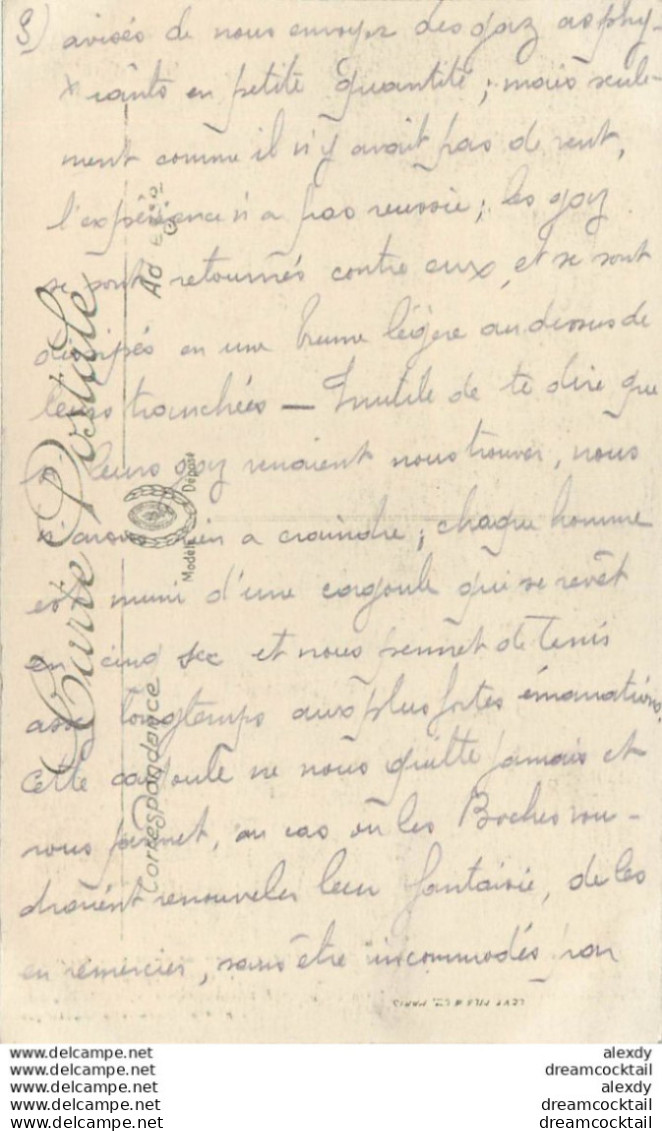 3) avisés de nous envoyer des gaz asphy-
xiants en petite quantité ; mais seule-
ment comme il n'y avait pas de vent,
l'expérience n'a pas reussie ; les gaz
se sont retournés contre eux, et se sont
dissipés en une brume légère au dessus de
leurs tranchées — Inutile de te dire que
si leurs gaz venaient nous trouver, nous
n'avons rien a craindre ; chaque homme
est muni d'une cagoule qui se revêt
en cinq sec et nous permet de tenir
assez longtemps aux plus fortes émanations.
Cette cagoule ne nous quitte jamais et
nous permet, au cas où les Boches vou-
draient renouveler leur fantaisie, de les
en remercier, sans être incommodés par
Carte Postale
Correspondance
Modèle Déposé
LEVY FILS & Cie PARIS
www.delcampe.net alexdy
www.delcampe.net dreamcocktail
www.delcampe.net alexdy
www.delcampe.net dreamcocktail
www.delcampe.net dreamcocktail